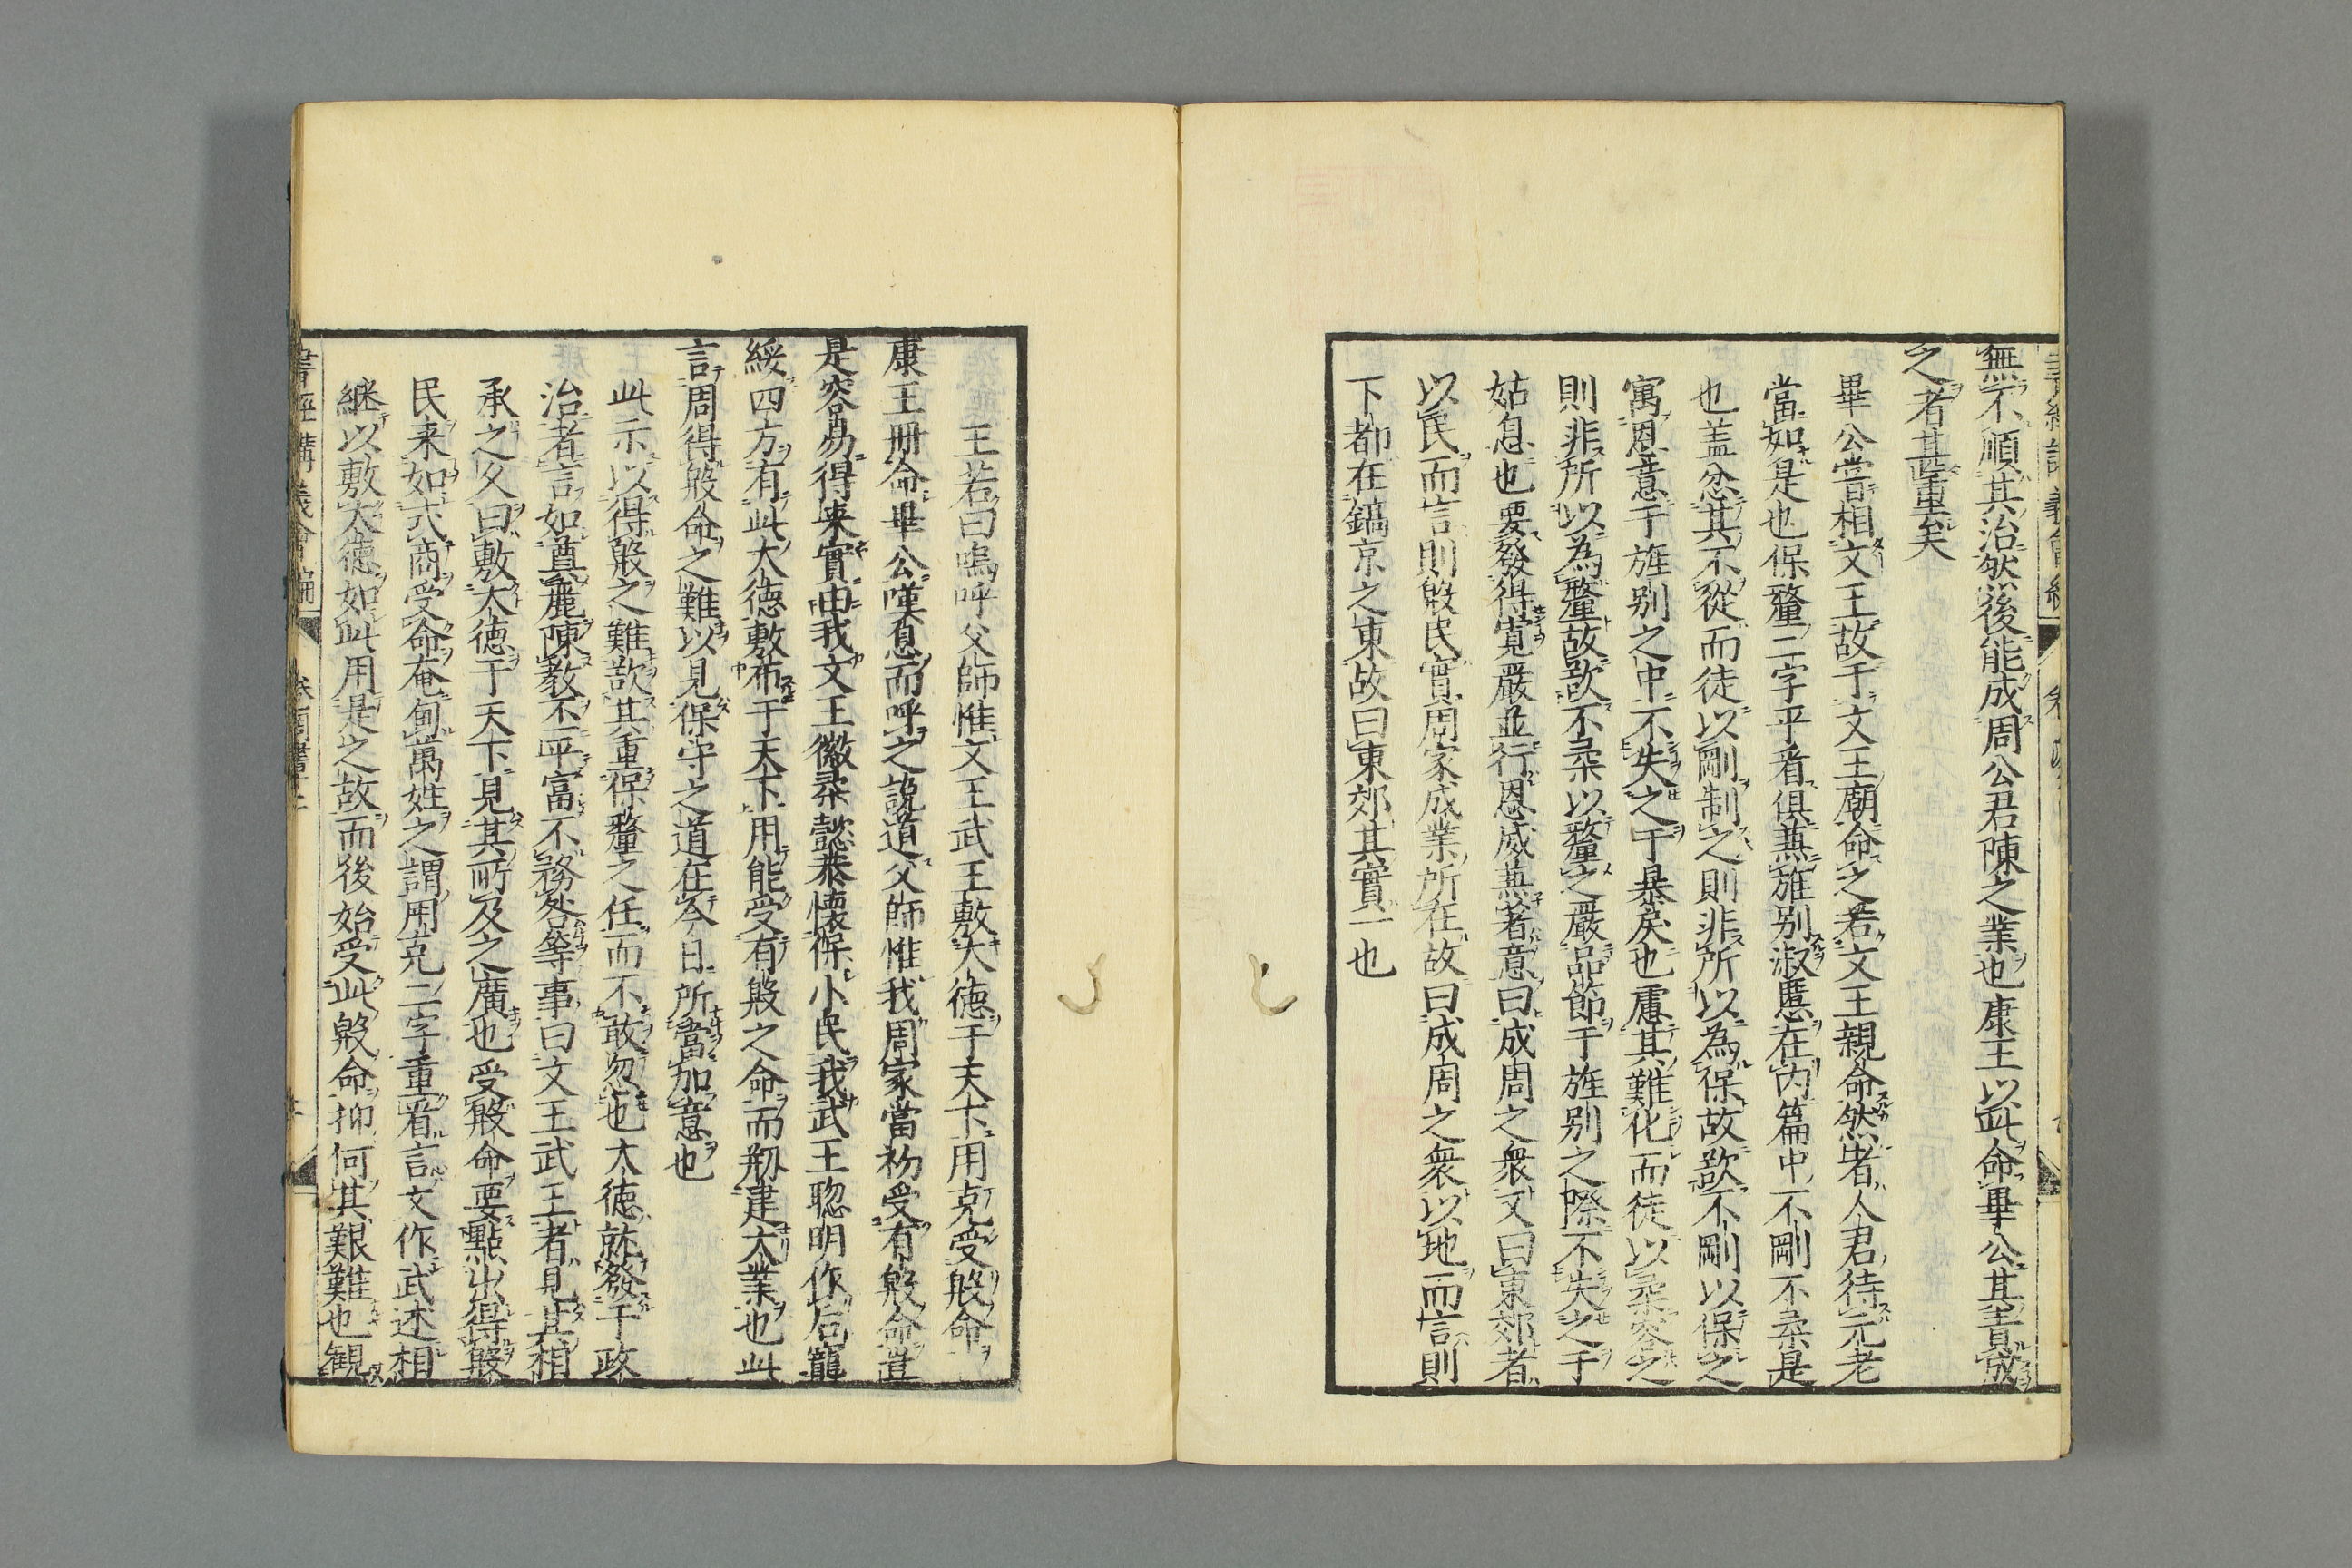 無不順其治然後能成周公君陳之業也康王以此命畢公其責成
之者甚重矣
畢公嘗相文王故于文王廟命之若文王親命然者人君待元老
當如是也保釐二字平看俱蕪旌別淑慝在內篇中不剛不柔是
也蓋忿其不從而徒以剛制之則非所以為保故欲不剛以保之
寓恩意于旌別之中不失之于暴戾也慮其難化而徒以柔容之
則非所以為釐故欲不柔以釐之嚴品節于旌別之際不失之于
姑息也要發得寬嚴並行恩威蕪著意曰成周之衆又曰東郊者
以民而言則殷民實周家成業所在故曰成周之衆以地而言則
下都在鎬京之東故曰東郊其實一也
王若曰嗚呼父師惟文王武王敷大德于天下用克受殷命
康王冊命畢公嘆息而呼之說道父師惟我周家當初受有殷命豈
是容易得来實由我文王徽柔懿恭懷保小民我武王聰明作后寵
綏四方有此大德敷布于天下用能受有殷之命而剏建大業也此
言周得殷命之難以見保守之道在今日所當加意也
此示以得殷之難欲其重保釐之任而不敢忽也大德就發于政
治者言如奠麗陳教不平富不務咎等事曰文王武王者見其相
承之久曰敷大德于天下見其所及之廣也受殷命要點出得殷
民来如式商受命奄甸萬姓之謂用克二字重看言文作武述相
継以敷大德如此用是之故而後始受此殷命抑何其艱難也観
書經講義會編